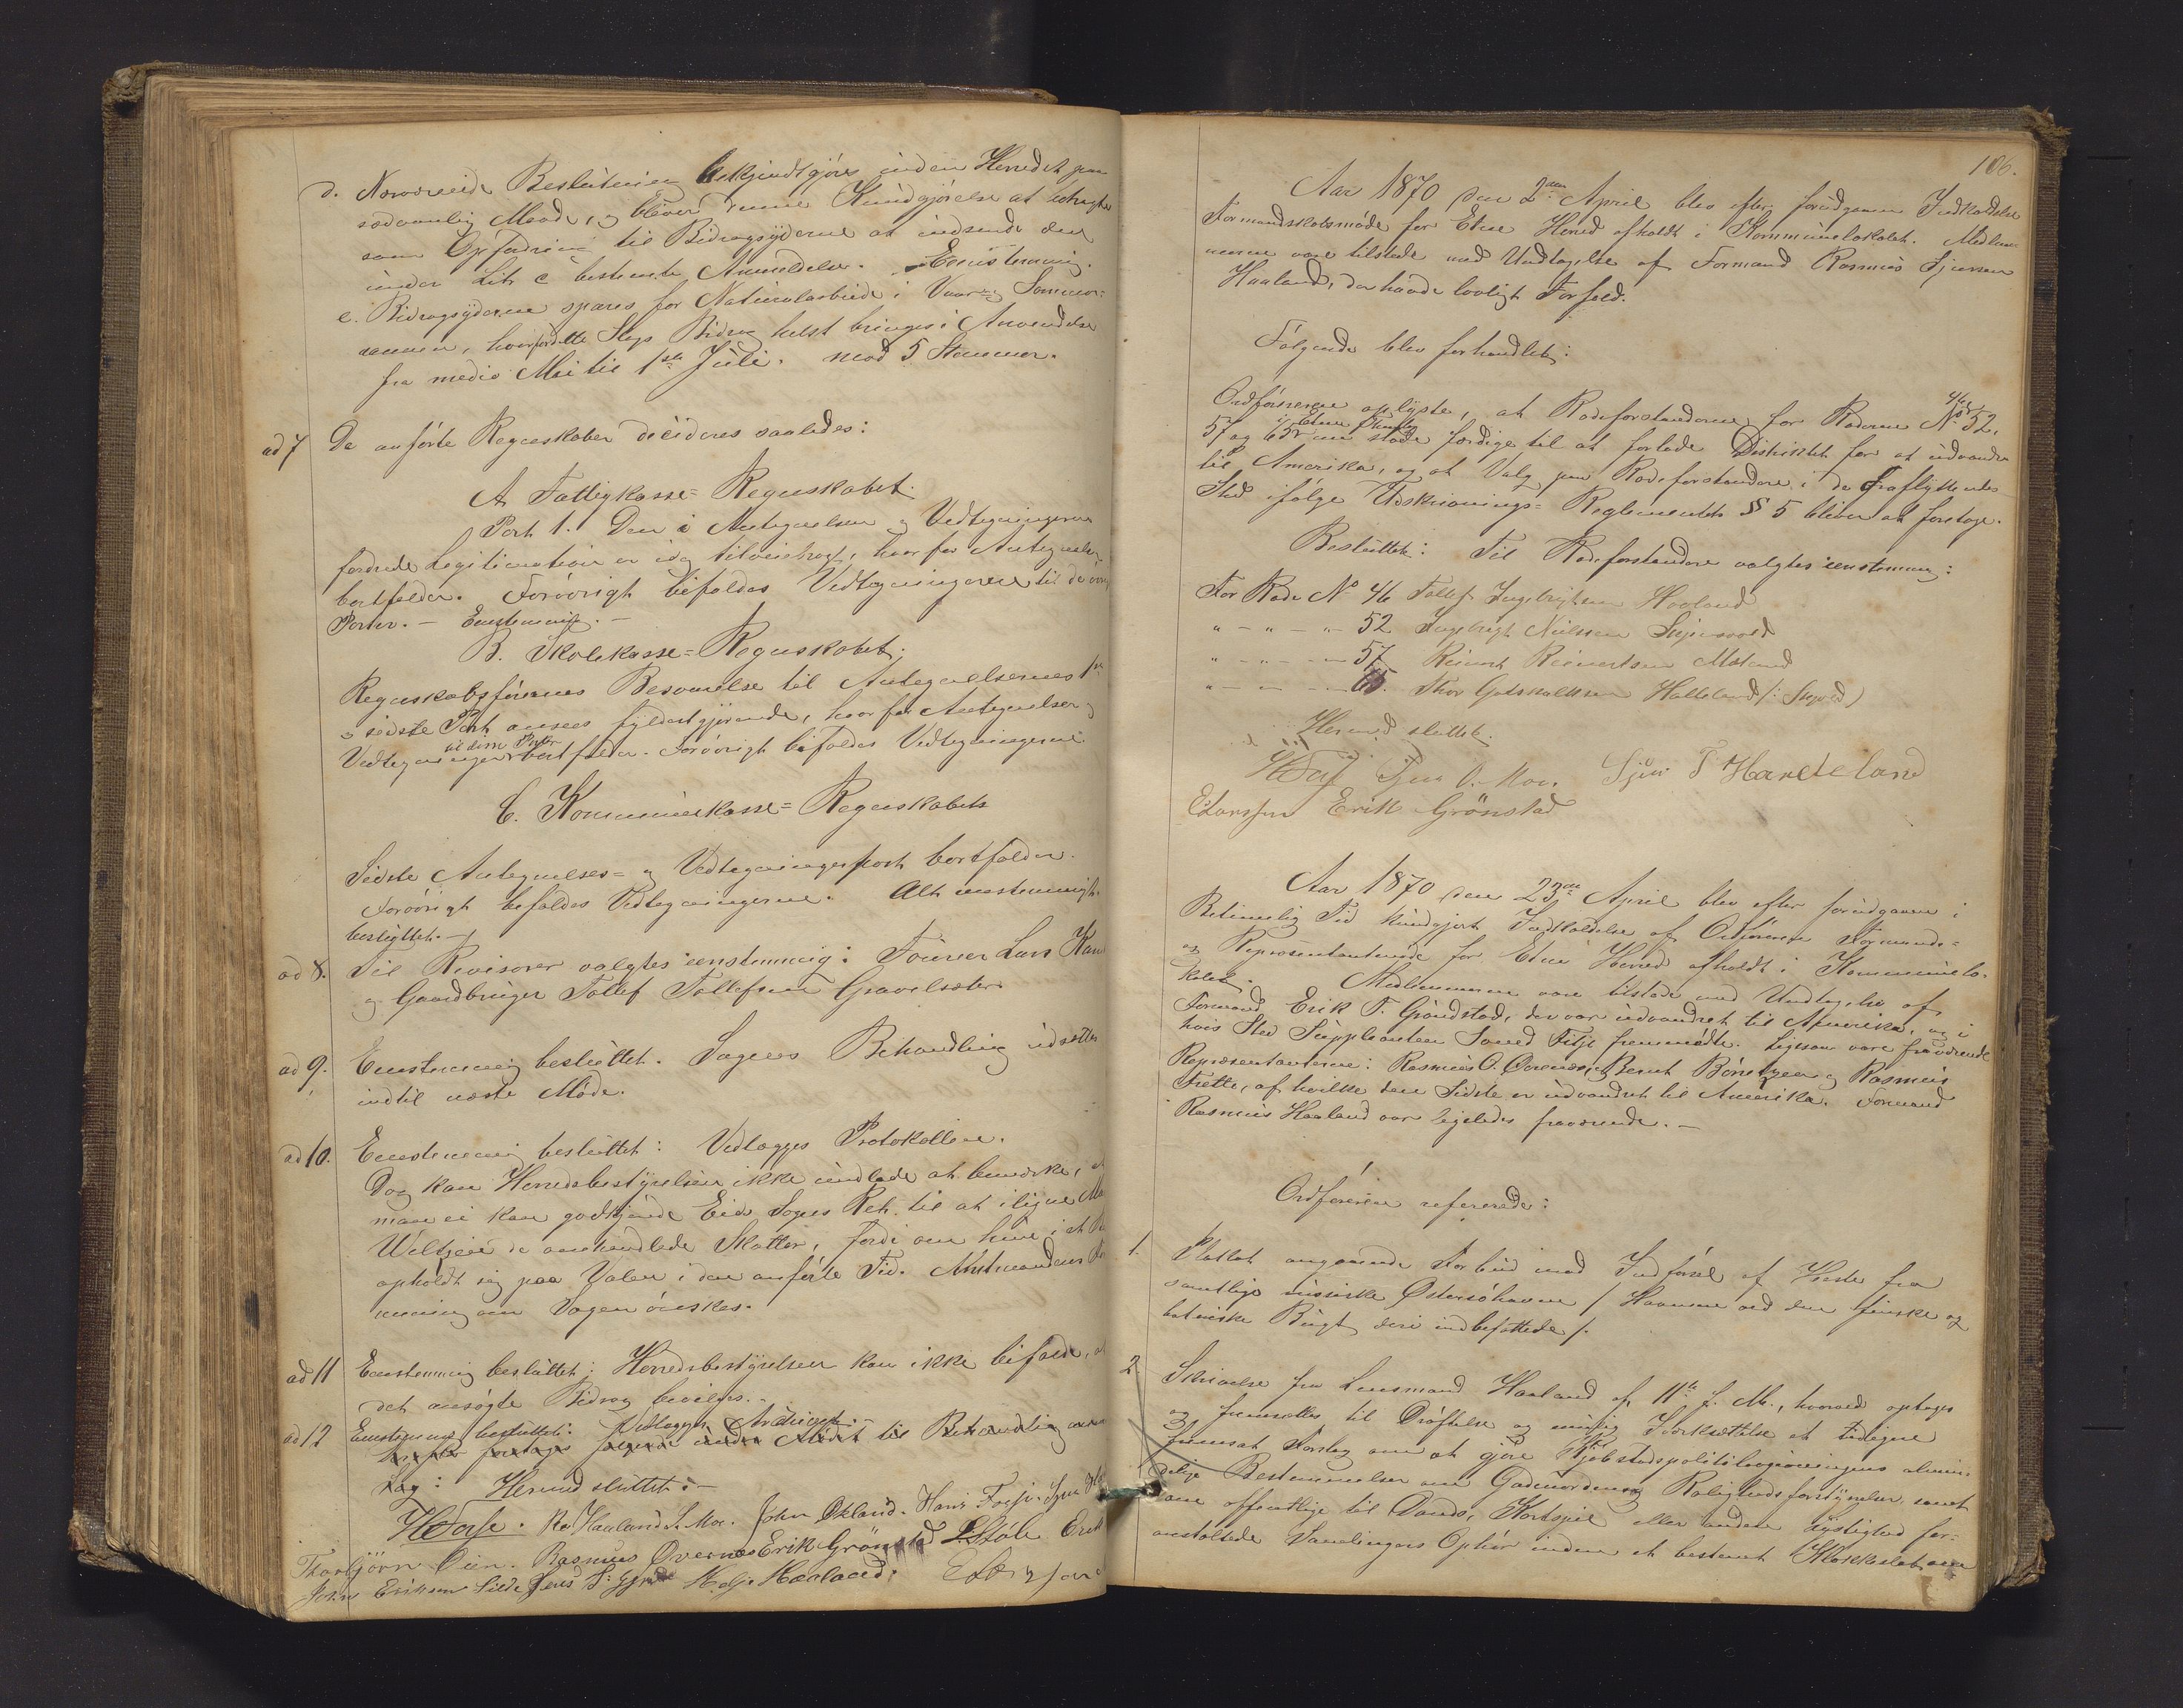 d. Nærværende Beslutning bekjendtgjøres inden Herredet paa
sædvanlig Maade, og bliver denne Kundgjørelse at udvirke
som Opfordring til Bidragsyderne at indsende den
under Litr c bestemte Anmeldelse. Eenstemmig.
e. Bidragsyderne spares for Naturalarbeide i Vaar- og Sommer-
aannen, hvorfor dette Slags Bidrag helst bringes i Anvendelse
fra medio Mai til 1ste Juli. mod 5 Stemmer.
ad 7 De anførte Regnskaber decideres saaledes:
A Fattigkasse-Regnskabet.
Post 1. Den i Antegnelsen og Vedtegningerne
fordrede Legitimation er idag tilveiebragt, hvorfor Antegnelsen
bortfalder. Forøvrigt bifaldes Vedtegningerne til de øvrige
Poster. - Eenstemmig. -
B. Skolekasse-Regnskabet.
Regnskabsførerens Besvarelse til Antegnelsernes 1ste
og sidste Post ansees fyldestgjørende, hvorfor Antegnelser og
Vedtegninger til disse Poster bortfalder. Forøvrigt bifaldes Vedtegningerne
C. Kommunekasse-Regnskabet
Sidste Antegnelses- og Vedtegningspost bortfalder.
Forøvrigt bifaldes Vedtegningerne. Alt eenstemmigt
besluttet. -
ad 8. Til Revisorer valgtes eenstemmig: Fourer Lars
og Gaardbruger Tollef Tollefsen Gravelsæter.
ad 9. Eenstemmig besluttet. Sagens Behandling udsættes
indtil næste Møde.
ad 10. Eenstemmig besluttet: Vedlægges Protokollen.
Dog kan Herredsbestyrelsen ikke undlade at bemærke, at
man ei kan godkjende Eids Sogns Ret til at iligne
de omhandlede Skatter, fordi om hun i et
opholdt sig paa Valen i den anførte Tid. Amtmandens
mening om Sagen ønskes.
ad 11 Eenstemmig besluttet: Herredsbestyrelsen kan ikke bifalde, at
det ansøgte Bidrag bevilges. -
ad 12 Eenstemmig besluttet: Vedlægges Archivet.
foretages under Mødet til Behandling
Sag: Hermed sluttet: -
R. Haaland. S. Moe. John Økland. Hans
Thorbjørn Øien. Rasmus Øvernæs Erik Grønstad L. Støle Erik
John Eriksen Silde Jens Helje Haaland.
106.
Aar 1870 den 2den April blev efter forudgaaen Indkaldelse
Formandskabsmøde for Etne Herred afholdt i Kommunelokalet. Medlem-
merne vare tilstede med Undtagelse af Formand Rasmus Sjursen
Haaland, der havde lovligt Forfald.
Følgende blev forhandlet:
Ordføreren oplyste, at Rodeforstanderne for Roderne No 46, 52,
57 og 65 i Etne Thinglag nu stode færdige til at forlade Distriktet for at udvandre
til Amerika, og at Valg paa Rodeforstandere i de Fraflyttendes
Sted ifølge Udskrivnings-Reglementets § 5 bliver at foretage.
Besluttet: Til Rodeforstandere valgtes eenstemmig:
For Rode No 46 Tollef Ingebrigtsen Haaland
" - " - " - 52 Ingebrigt Nielsen
" - " - " - 57 Reinert Reinertsen Østand
" - " - " - 65. Thor Gotskalksen Halleland (: Skjold)
Hermed sluttet.
Sjur S Handeland
Erik Grönstad
Aar 1870 den 23de April blev efter forudgaaen i
Betimelig Tid kundgjort Indkaldelse af Ordføreren Formands-
og Repræsentantmøde for Etne Herred afholdt i Kommunelo-
kalet. Medlemmerne vare tilstede med Undtagelse af
Formand Erik T. Grindstad, der var udvandret til Amerika, og i
hvis Sted Suppleanten Fitje fremmødte. Ligesom vare fraværende
Repræsentanterne: Rasmus O. Øvernæs, Bernt Børretzen og Rasmus
Frette, af hvilke den Sidste er udvandret til Amerika. Formand
Rasmus Haaland var ligeledes fraværende. -
Ordføreren refererede:
1. Plakat angaaende Forbud mod Indførsel af Heste fra
samtlige russiske Østersøhavne / Havnene ved den finske og
botniske Bugt deri indbefattede /.
2. Skrivelse fra Lensmand Haaland af 11te f. M., hvorved optages
og fremsættes til Drøftelse og mulig Iværksættelse et tidligere
fremsat Forslag om at gjøre Kjøbstadspolitilovgivningens almin-
delige Bestemmelser om Gadeuorden og Roligheds forstyrrelser samt
om offentlige til Dands, Kortspil eller anden Lystighed for-
anstaltede Samlingers Ophør inden et bestemt Klokkeslet om